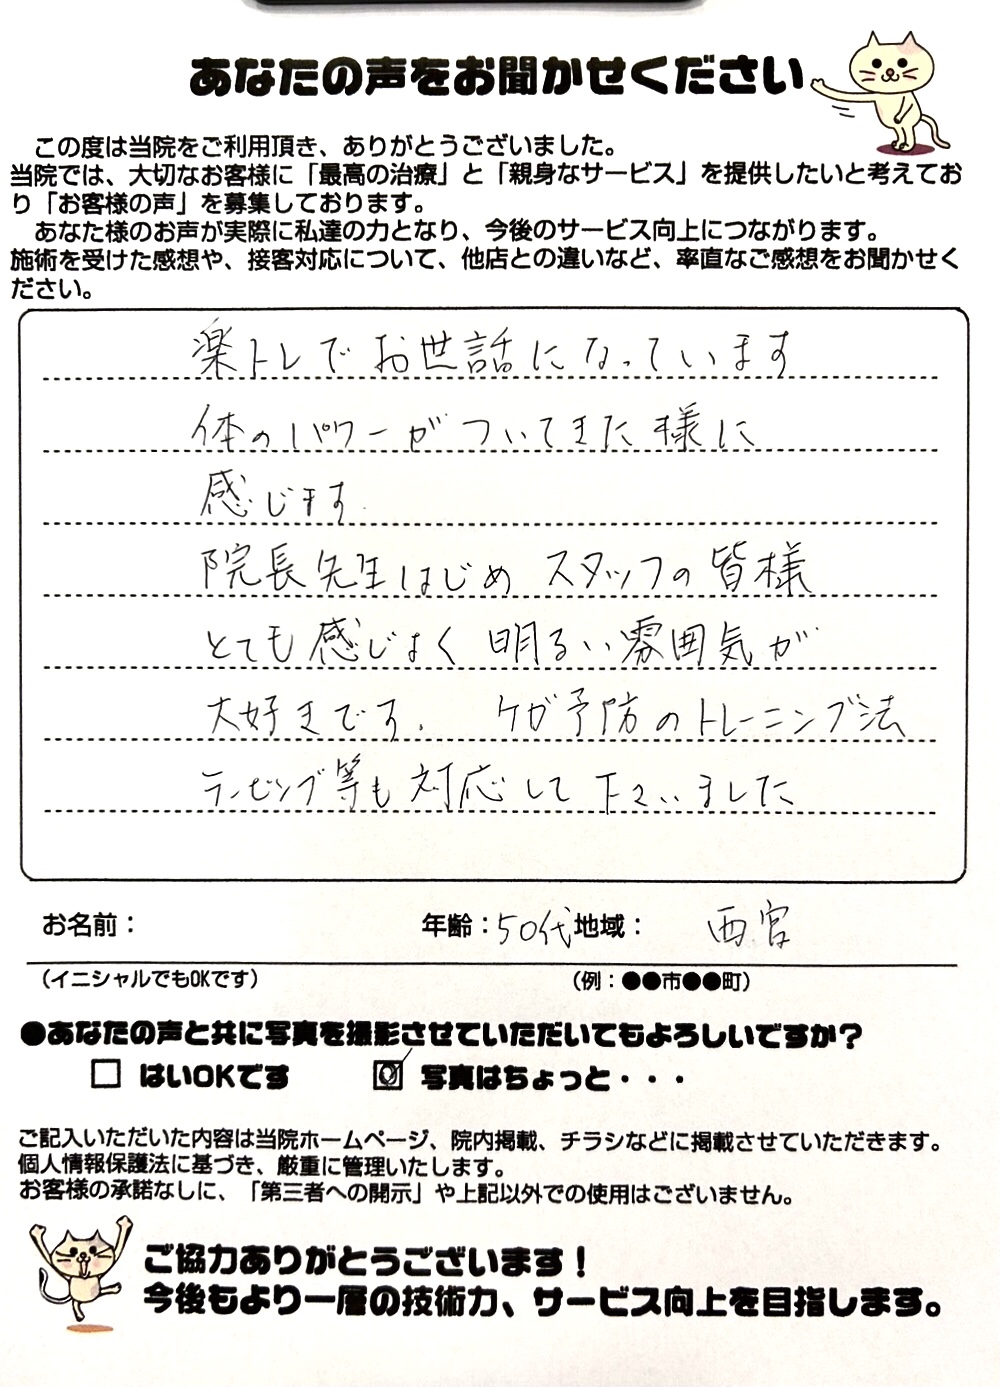 あなたの声をお聞かせください
この度は当院をご利用頂き、ありがとうございました。
当院では、大切なお客様に「最高の治療」と「親身なサービス」を提供したいと考えてお
り「お客様の声」を募集しております。
あなた様のお声が実際に私達の力となり、今後のサービス向上につながります。
施術を受けた感想や、接客対応について、他店との違いなど、率直なご感想をお聞かせく
ださい。
楽トレでお世話になっています
体のパワーがついてきた様に
感じます.
院長先生はじめ スタッフの皆様
とても感じよく 明るい雰囲気が
大好きです. ケガ予防のトレーニング法
テーピング等も対応して下さいました
お名前： 年齢：50代 地域： 西宮
（イニシャルでもOKです） （例：●●市●●町）
●あなたの声と共に写真を撮影させていただいてもよろしいですか？
□ はいOKです ☑ 写真はちょっと・・・
ご記入いただいた内容は当院ホームページ、院内掲載、チラシなどに掲載させていただきます。
個人情報保護法に基づき、厳重に管理いたします。
お客様の承諾なしに、「第三者への開示」や上記以外での使用はございません。
ご協力ありがとうございます！
今後もより一層の技術力、サービス向上を目指します。